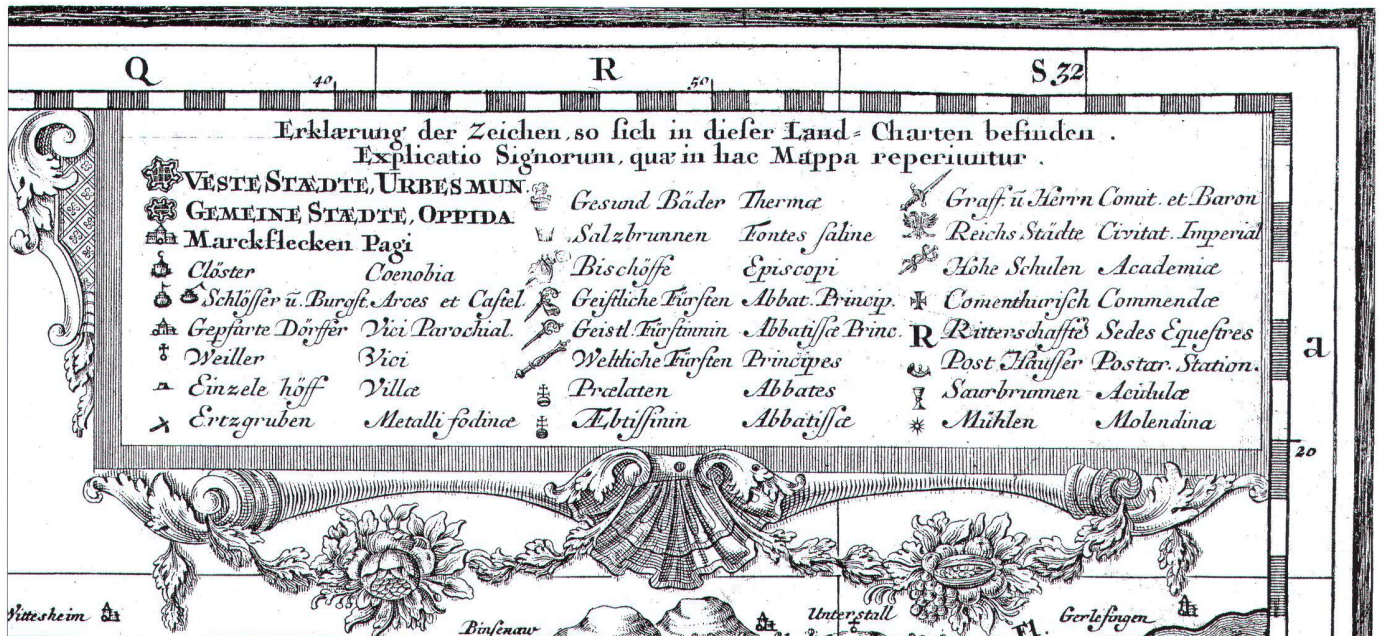 Q R S 32
40 50
Erklærung der Zeichen, so sich in dieser Land=Charten befinden.
Explicatio Signorum, quæ in hac Mappa reperiuntur.
VESTE STÆDTE, URBES MUN.
GEMEINE STÆDTE, OPPIDA
Marckflecken Pagi
Clöster Coenobia
Schlösser ū. Burgst. Arces et Castel.
Gepfarte Dörffer Vici Parochial.
Weiller Vici
Einzele höff Villæ
Ertzgruben Metalli fodinæ
Gesund Bäder Thermæ
Salzbrunnen Fontes saline
Bischöffe Episcopi
Geistliche Fürsten Abbat. Princip.
Geistl. Fürstinnin Abbatissæ Princ.
Weltliche Fürsten Principes
Prælaten Abbates
Æbtissinin Abbatissæ
Graff. ū Herrn Comit. et Baron
Reichs Städte Civitat. Imperial
Hohe Schulen Academiæ
Comenthurisch Commendæ
R Ritterschaffts Sedes Equestres
Post Häusser Postar. Station.
Saurbrunnen Acidulæ
Mühlen Molendina
a
20
Wittesheim
Binsenaw
Unterstall
Gerlefingen
Fl.